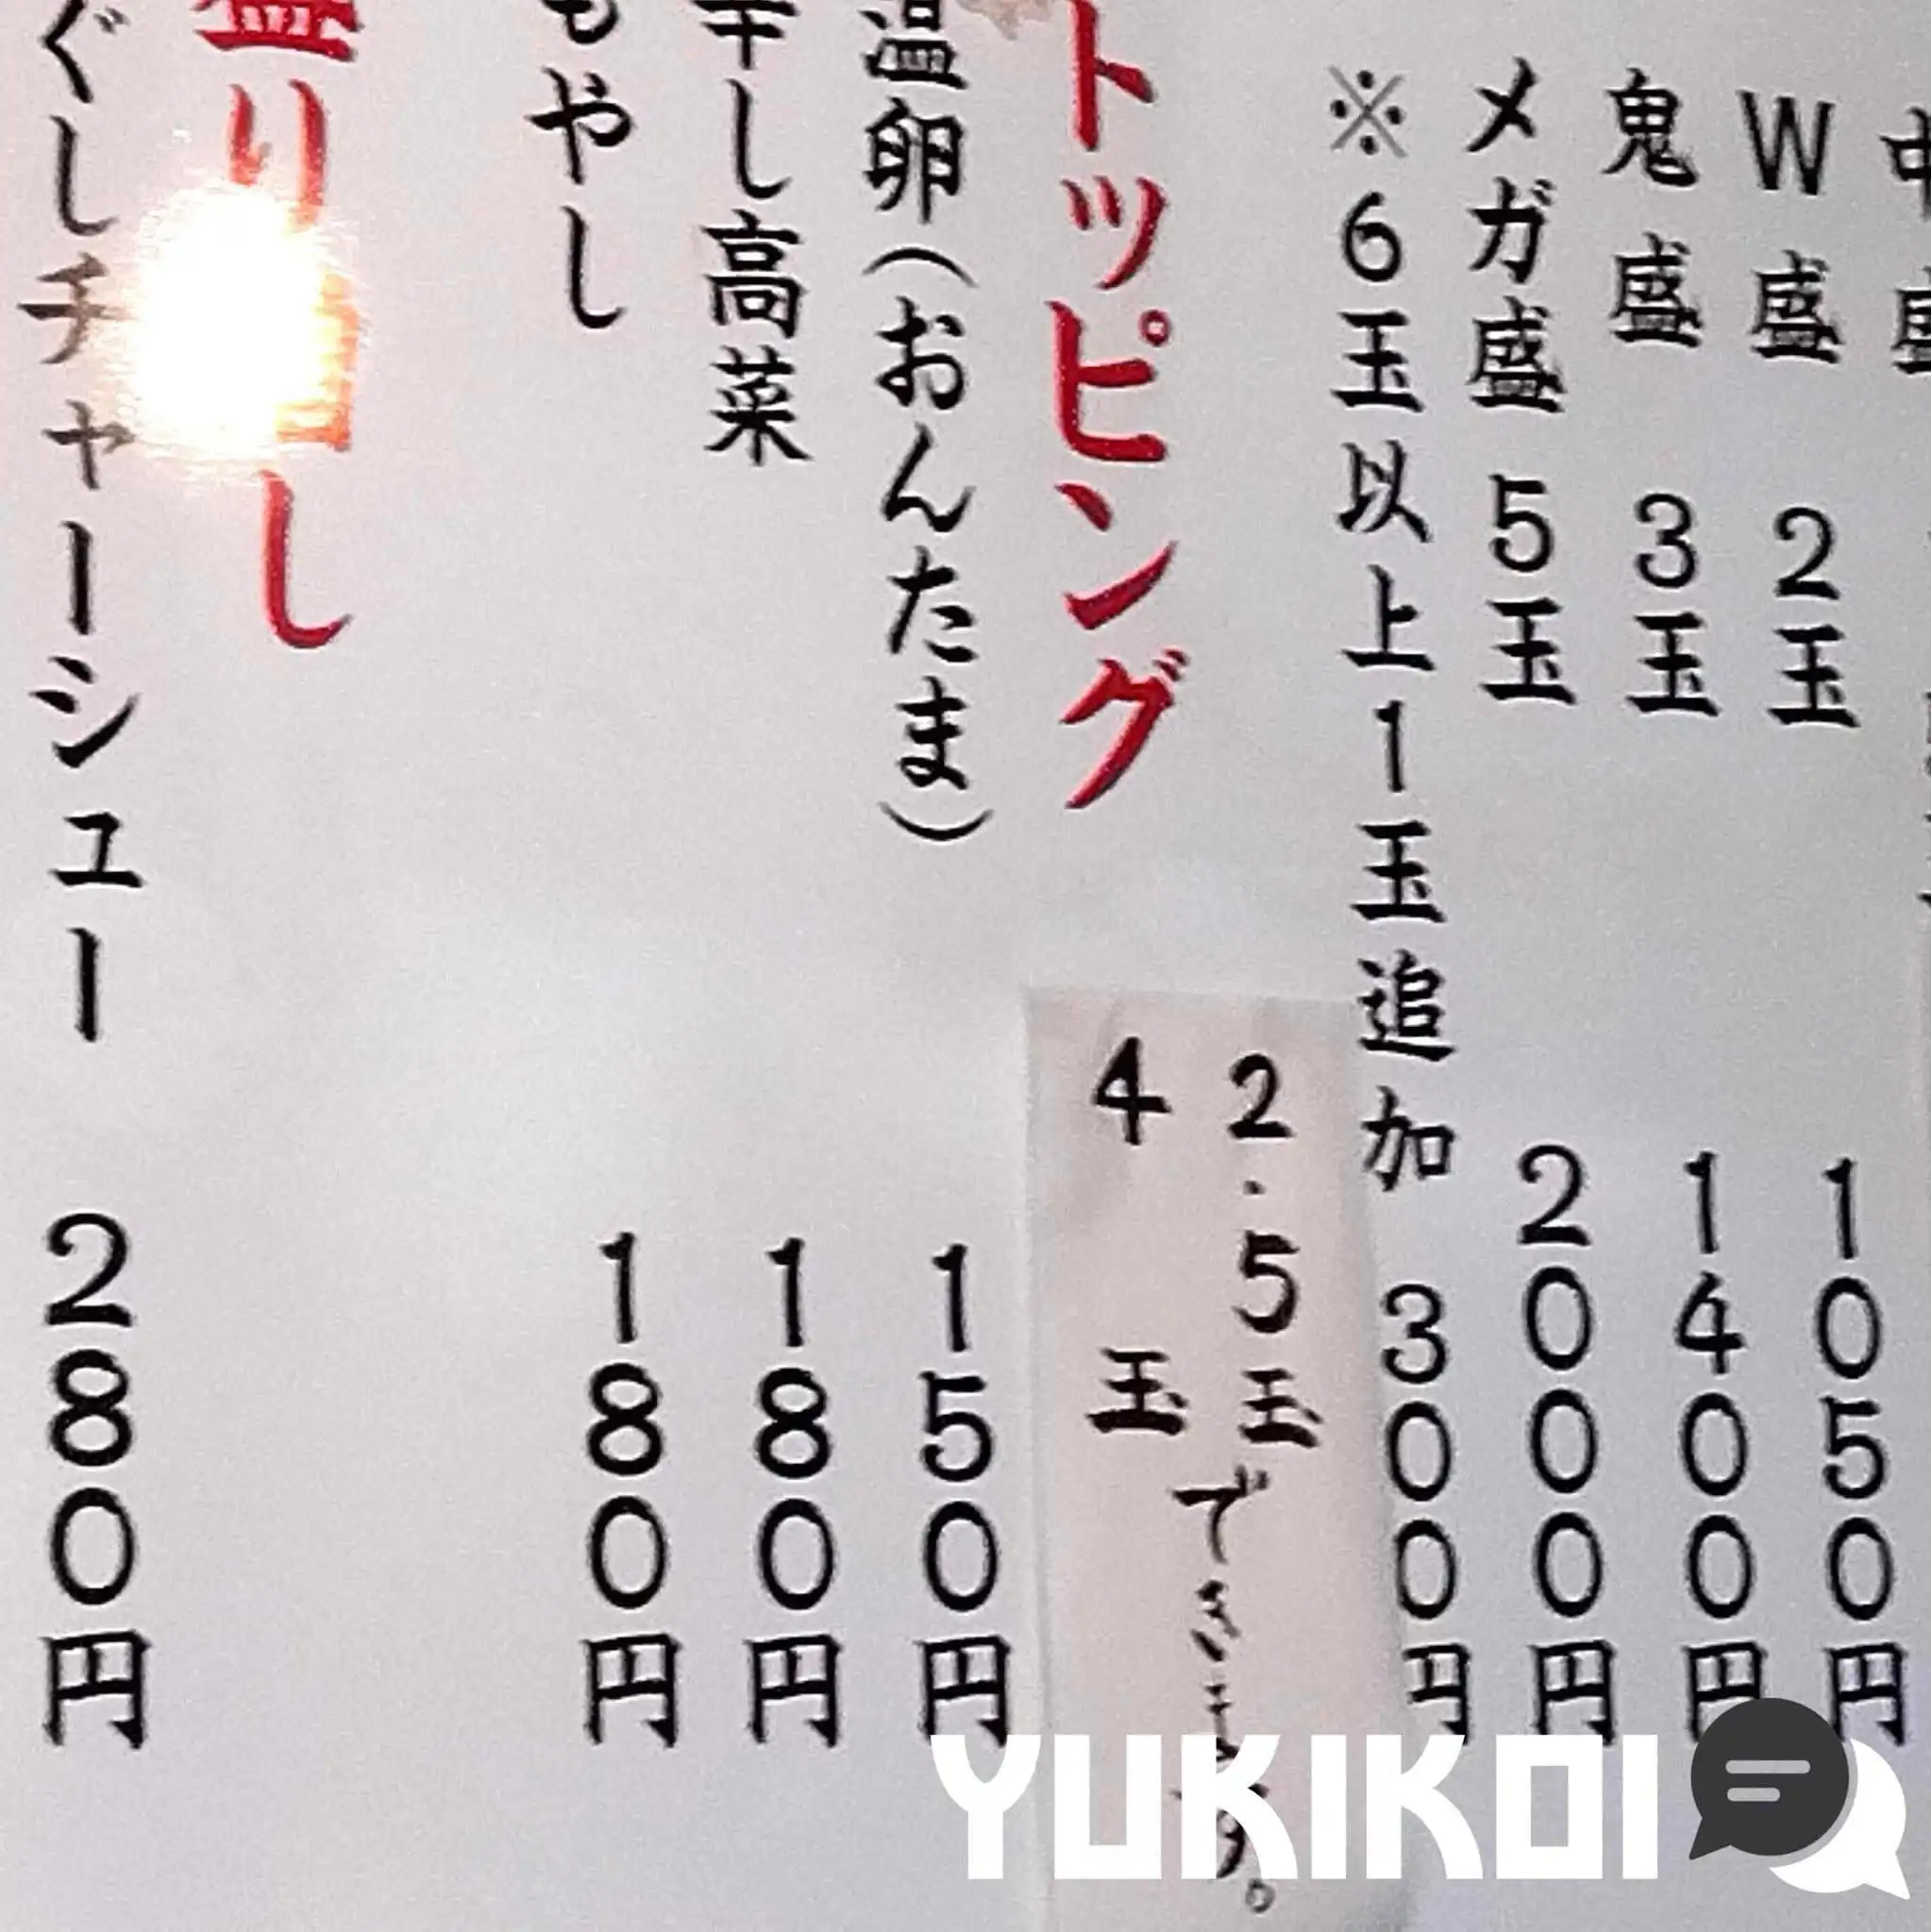 中盛
W盛 2玉 1050円
鬼盛 3玉 1400円
メガ盛 5玉 2000円
※6玉以上1玉追加 300円
2.5玉
4玉
できます。
トッピング
温卵(おんたま) 150円
辛し高菜 180円
もやし 180円
盛り
し
ぐしチャーシュー 280円
YUKIKOI